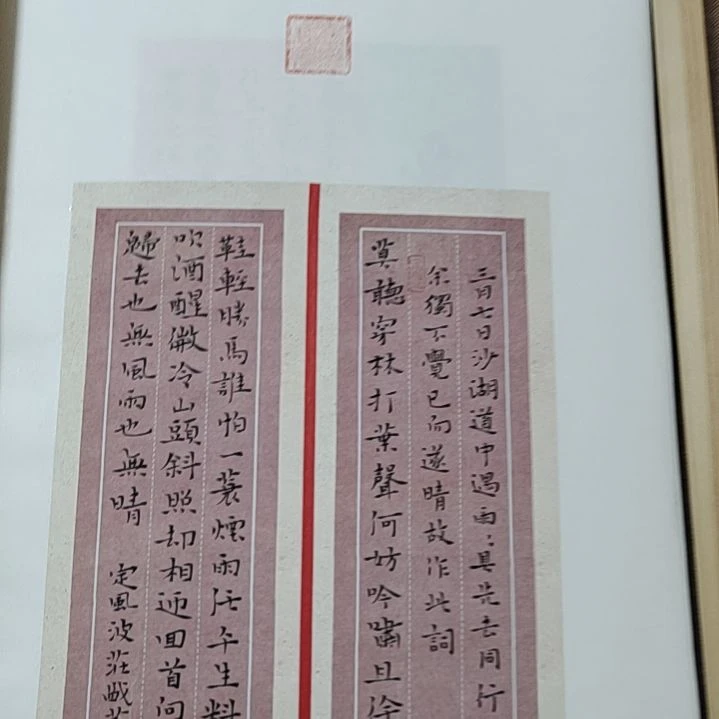 三月七日沙湖道中遇雨〻具先去同行
余獨不覺已而遂晴故作此詞
莫聽穿林打葉聲何妨吟嘯且徐
鞋輕勝馬誰怕一蓑煙雨任平生料
吹酒醒微冷山頭斜照却相迎回首向
歸去也無風雨也無晴 定風波莊